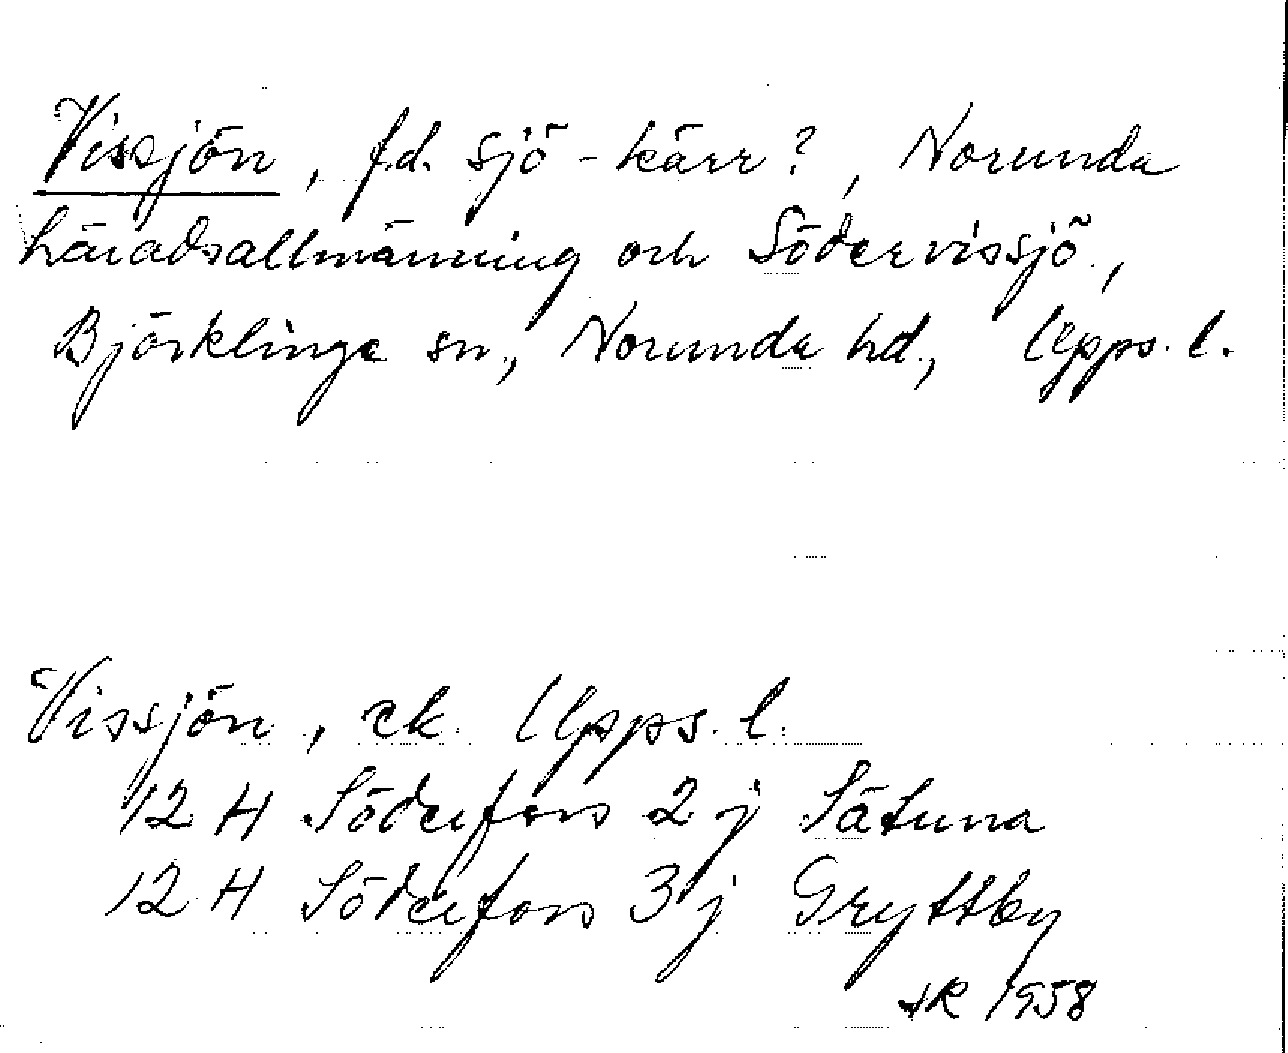 Vissjön, f.d. sjö - kärr?, Norunda
häradsallmänning och Södervissjö,
Björklinge sn, Norunda hd, Upps. l.
Vissjön, ek. Upps. l.
12 H Söderfors 2 j Sätuna
12 H Söderfors 3 j Gryttby
1958